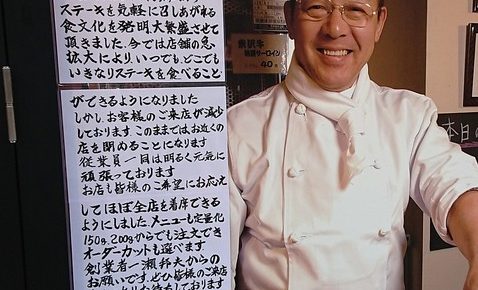 ステーキを気軽に召し上がれる
食文化を発明、大繁盛させて
頂きました。今では店舗の急
拡大により、いつでも、どこでも
いきなりステーキを食べること
ができるようになりました
しかし、お客様のご来店が減少
しております このままではお近くの
店を閉めることになります
従業員一同は明るく元気に
頑張っております
お店も皆様のご希望にお応え
してほぼ全店を着席できる
ようにしました。メニューも定量化
150g、200gからでも注文でき
オーダーカットも選べます
創業者一瀬邦夫からの
お願いです。ぜひ皆様のご来店
お待ちしております
米沢牛
40
本日の